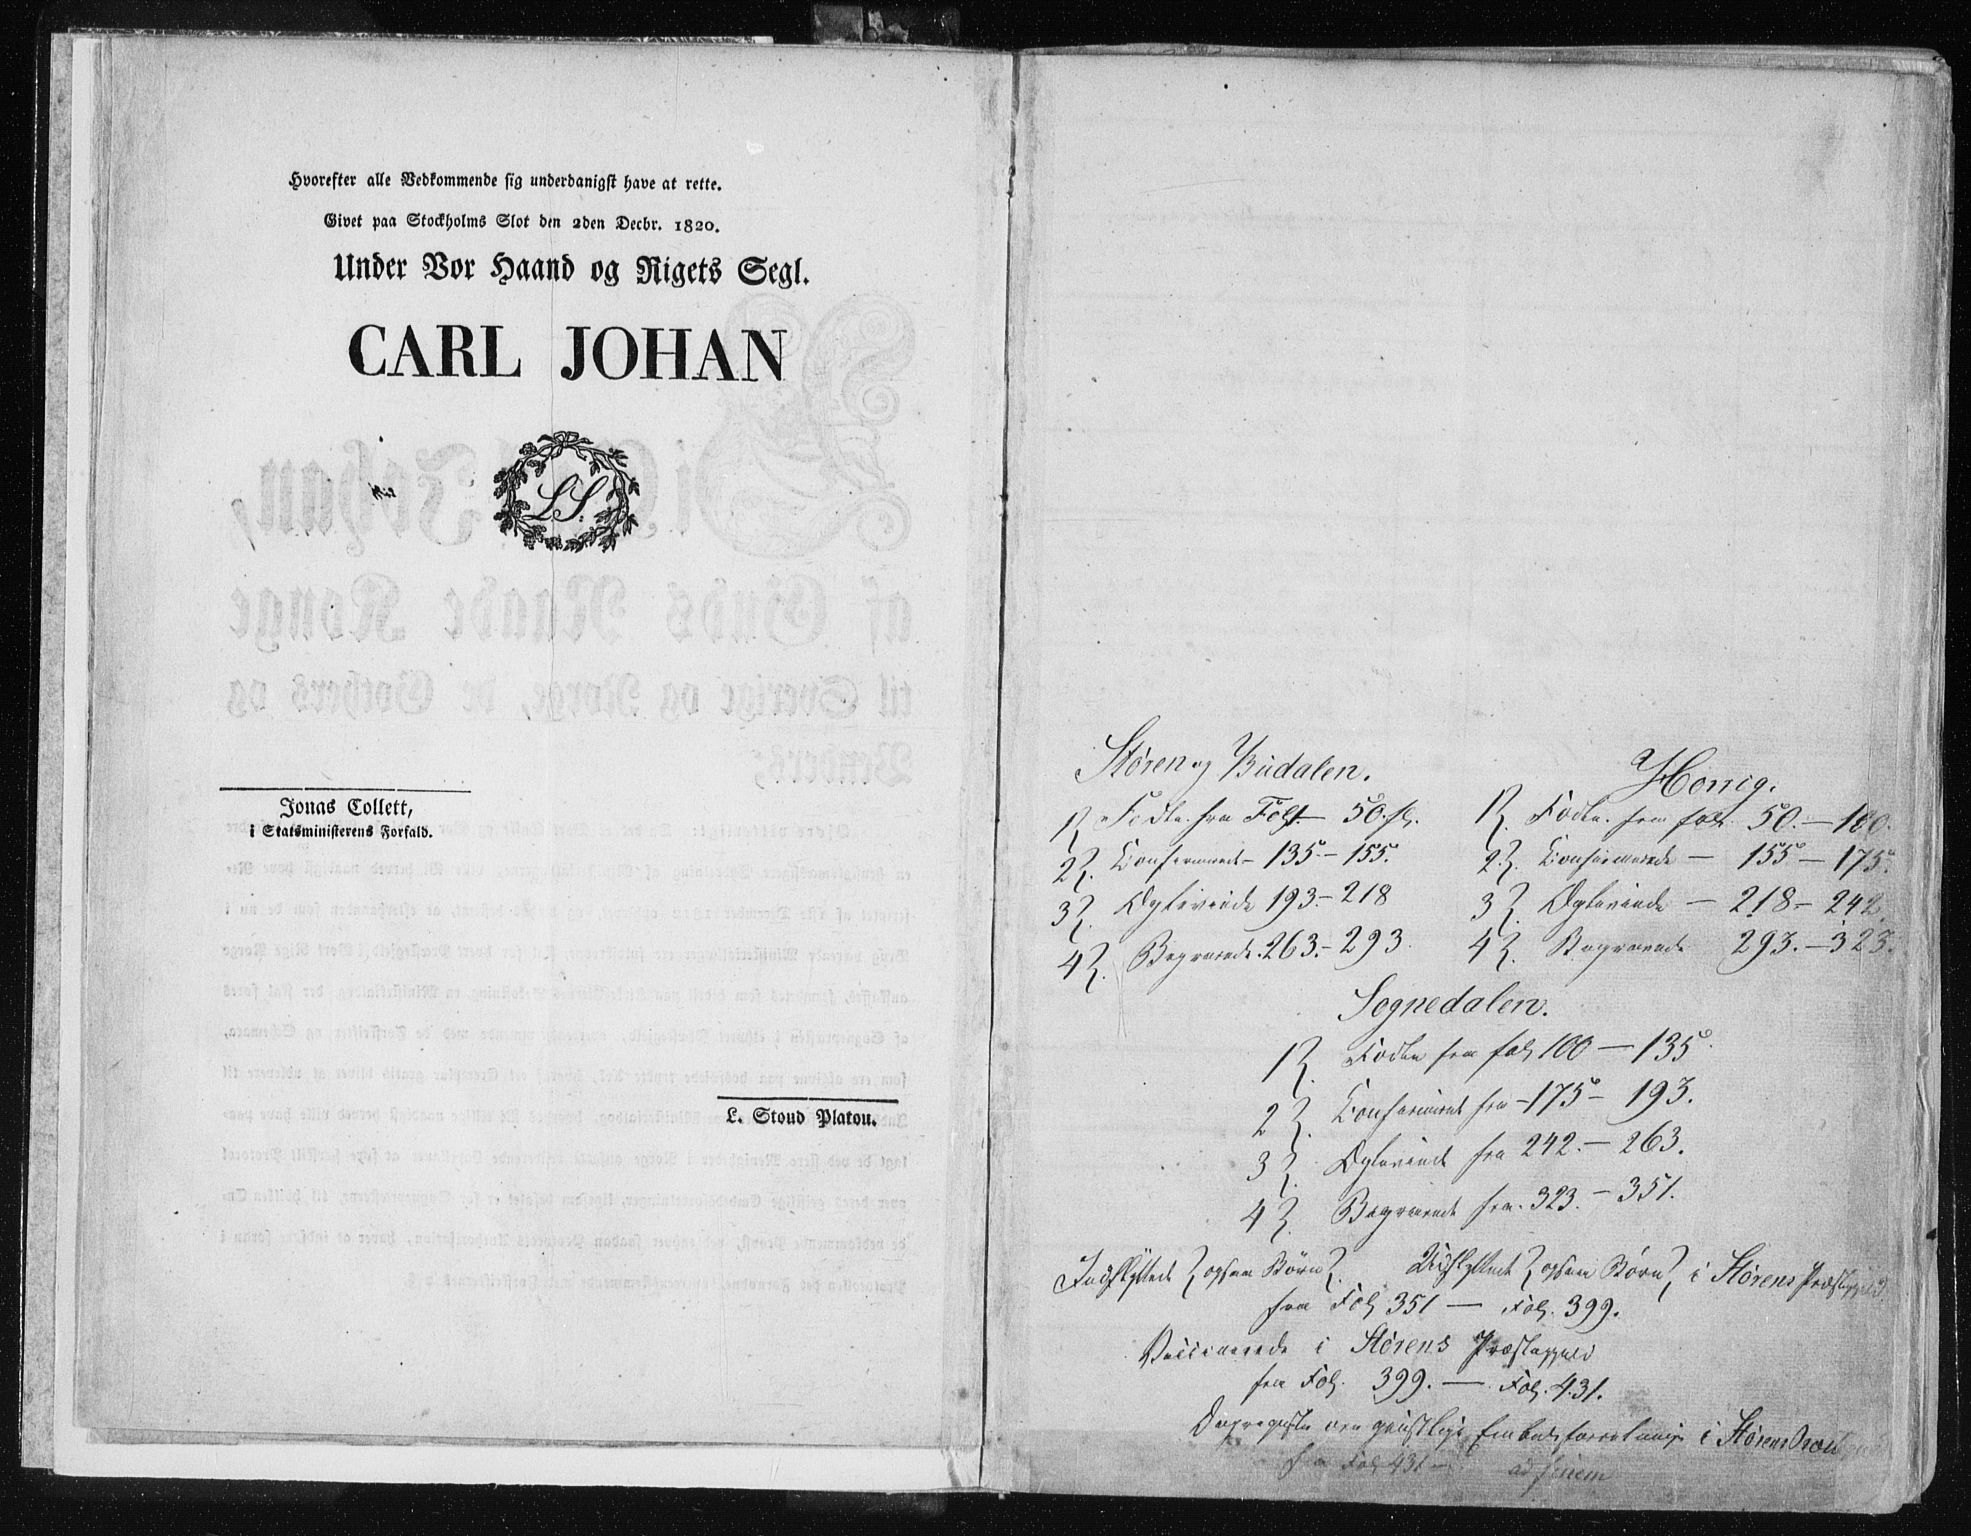 Hvorefter alle Vedkommende sig underdanigst have at rette.
Givet paa Stockholms Slot den 2den Decbr. 1820.
Under Vor Haand og Rigets Segl.
CARL JOHAN
L.S.
Jonas Collett,
i Statsministerens Forfald.
L. Stoud Platou.
Støren og Budalen.
1) Fødte fra Fol. 1 – 50. fol.
2) Confirmerede – 135 – 155.
3) Ægteviede 193 – 218
4) Begravede 263. – 293.
Horrig.
1) Fødte fra fol. 50. – 100.
2) Confirmerede – 155 – 175.
3) Ægteviede – 218 – 242.
4) Begravede 293. – 323.
Sognedalen.
1) Fødte fra fol 100 – 135.
2) Confirmerede fra – 175 – 193.
3) Ægteviede fra 242. – 263.
4) Begravede fra 323. – 351.
Indflyttede (ogsaa Børn). Udflyttede (ogsaa Børn) i Størens Præstegjeld
fra Fol. 351 – Fol. 399.
Vaccinerede i Størens Præstegjeld
fra Fol. 399. – Fol. 431.
Dagregister over geistlige Embedsforretninger i Størens
fra Fol 431 – ad finem